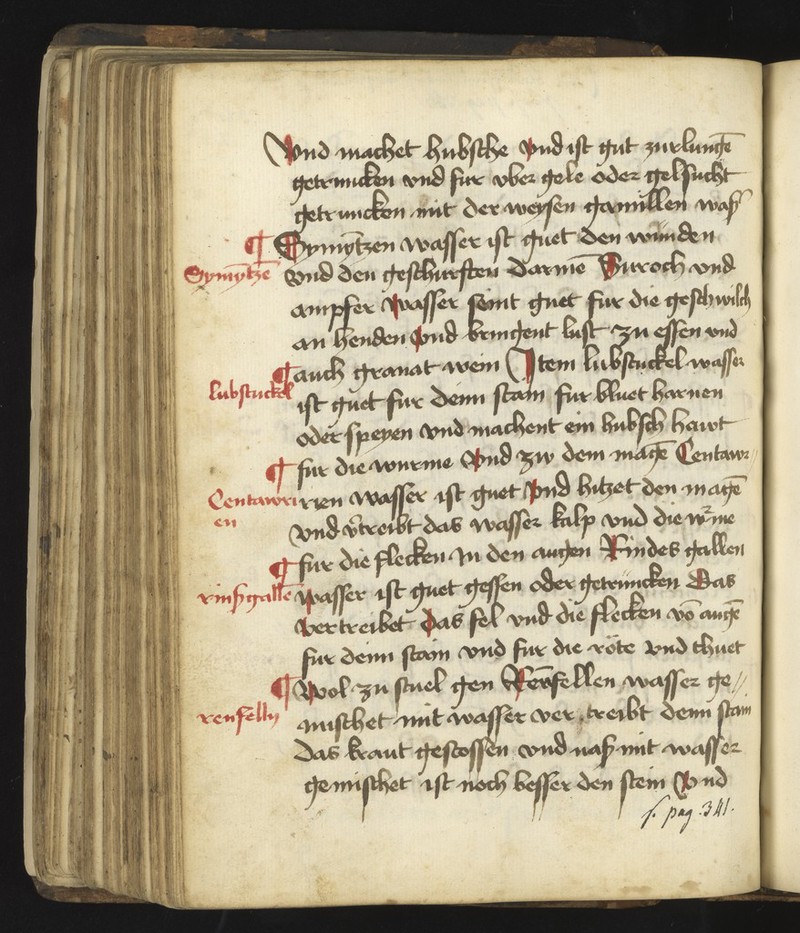 Vnd machet hubsche vnd ist gut zurlungē
getruncken vnd fur vber gele oder gelsucht
getruncken mit der weysen gamillen waſſ
¶ Symytzen wasser ist guet den wunden
Symytzē
vnd den geschurften darmē Buroch vnd
ampfer wasser seint guet fur die geschwilch
an henden vnd bringent lust zu essen vnd
¶ auch granat wein Item lubstuckel wasser
lubstuckel
ist guet fur denn stain fur bluet harnen
oder speyen vnd machent ein hubsch hawt
¶ fur die wurme vnd zw dem magē Centawr
Centawri
en
rien wasser ist guet vnd hitzet den magē
vnd v̄treibt das wasser kalp vnd die wͬme
¶ fur die flecken In den augen Rindes gallen
rinſgallē
wasser ist guet gessen oder getruncken Das
vertreibet das fel vnd die flecken vō augē
fur denn stain vnd fur die röte vnd thuet
¶ wol zu stuel gen Renfellen wasser ge
renfelln
mischet mit wasser ver treibt denn stain
das kraut gestossen vnd naſ mit wasser
gemischet ist noch besser den stein vnd
f. pag. 341.